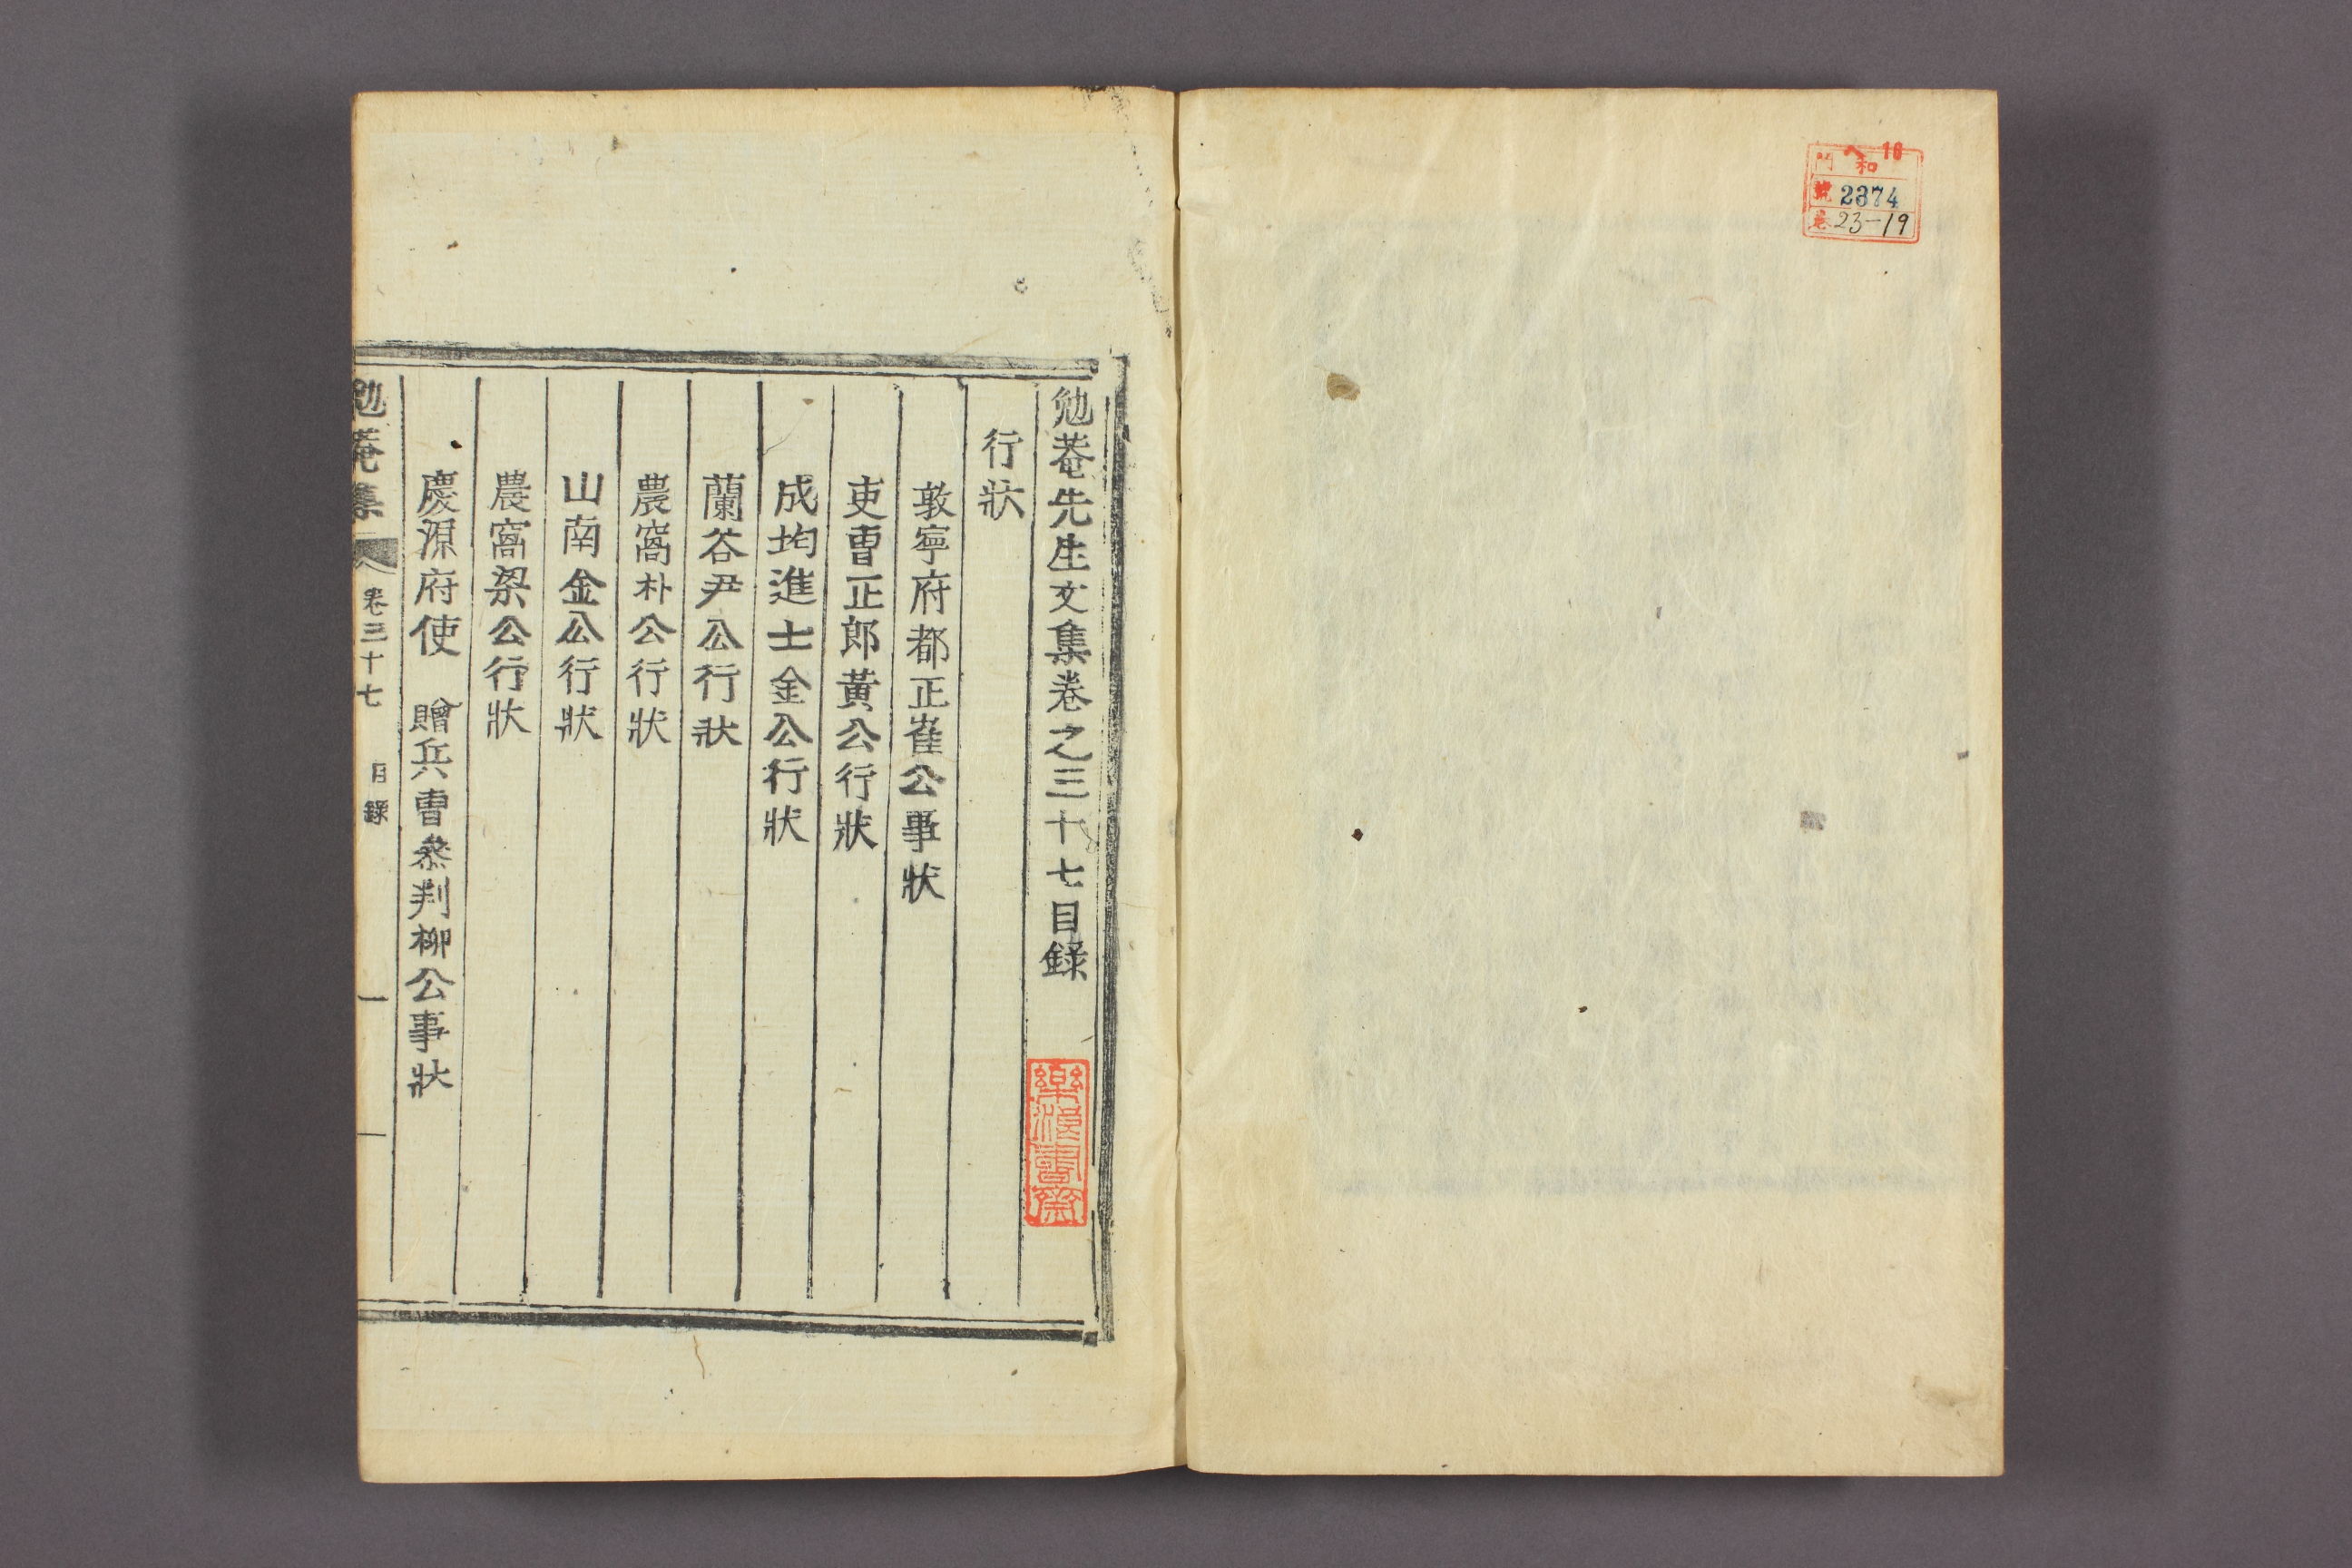 門 ヘ 16 和
號 2374
卷 23-19
勉菴先生文集卷之三十七目錄
行狀
敦寧府都正崔公事狀
吏曹正郎黃公行狀
成均進士金公行狀
蘭谷尹公行狀
農窩朴公行狀
山南金公行狀
農窩梁公行狀
慶源府使 贈兵曹叅判柳公事狀
勉菴集 卷三十七 目錄 一